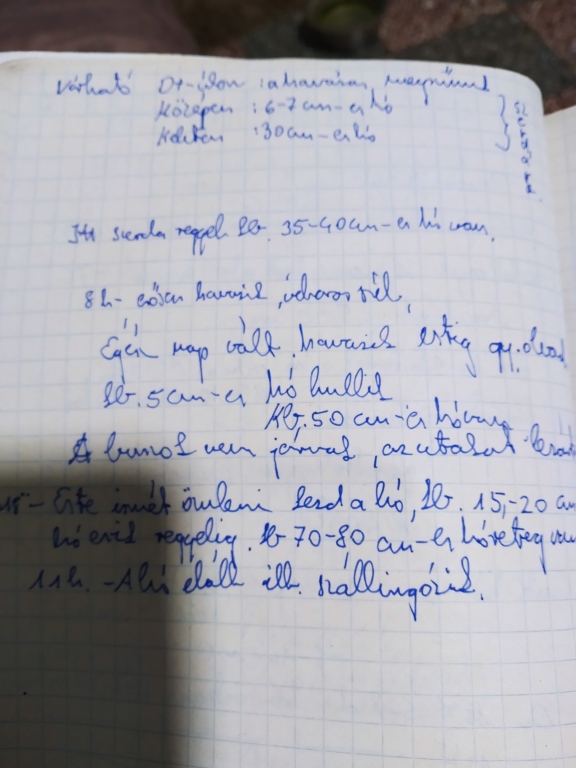 Várható Dt-úton : a havazás megszűnik
Közepén : 6-7 cm-es hó
Keleten : 30 cm-es hó
Itt szerda reggel kb. 35-40 cm-es hó van.
8h- erősen havazik, viharos szél,
Egész nap vált. havazik estig
kb. 5 cm-es hó hullik
Kb. 50 cm-es hó van
A buszok nem járnak, az utakat
Este ismét ömleni kezd a hó, kb. 15,-20 cm
hó esik reggelig. kb 70-80 cm-es hóréteg van
11h. - A hó eláll ill. szállingózik.